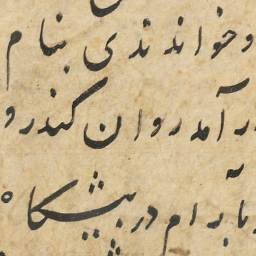 و خواندندی بنام
در آمد روان کندرو
بآرام در پیشگاه